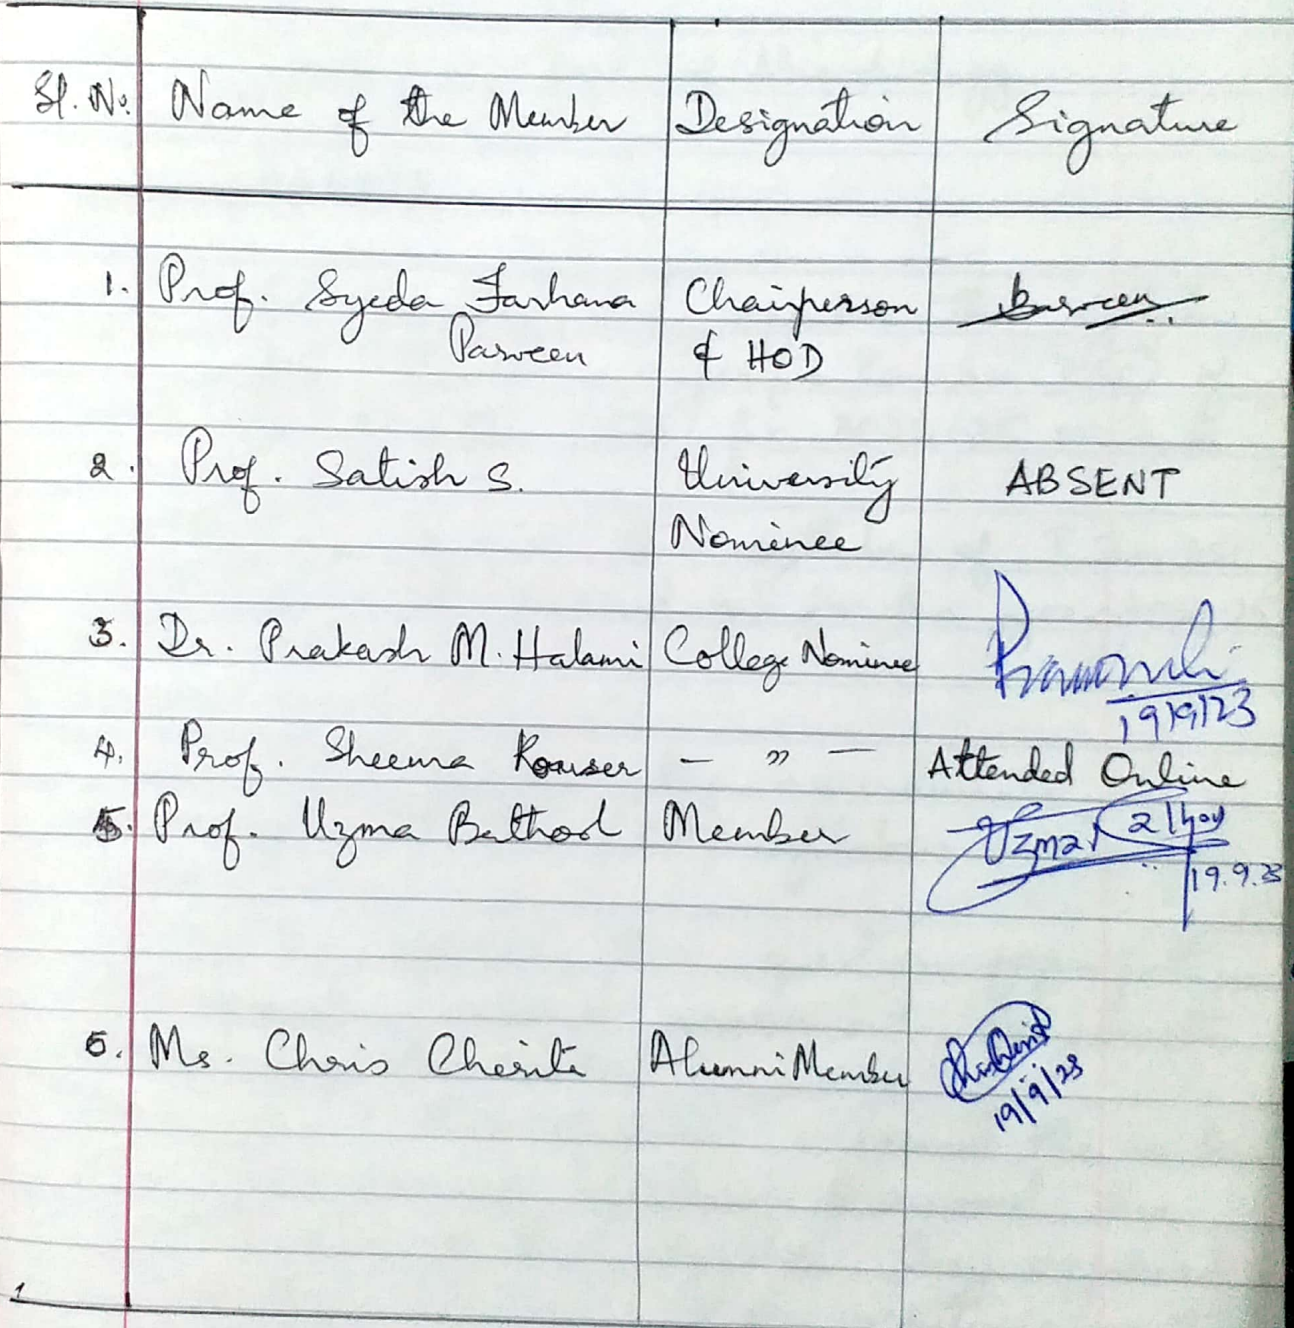 Sl. No. Name of the Member Designation Signature
1. Prof. Syeda Farhana Chairperson
Parveen & HOD
2. Prof. Satish S. University ABSENT
Nominee
3. Dr. Prakash M. Halami College Nominee
19/9/23
4. Prof. Sheema Kouser - " - Attended Online
5. Prof. Uzma Member Uzma
19.9.23
6. Ms. Chris Alumni Member
19/9/23